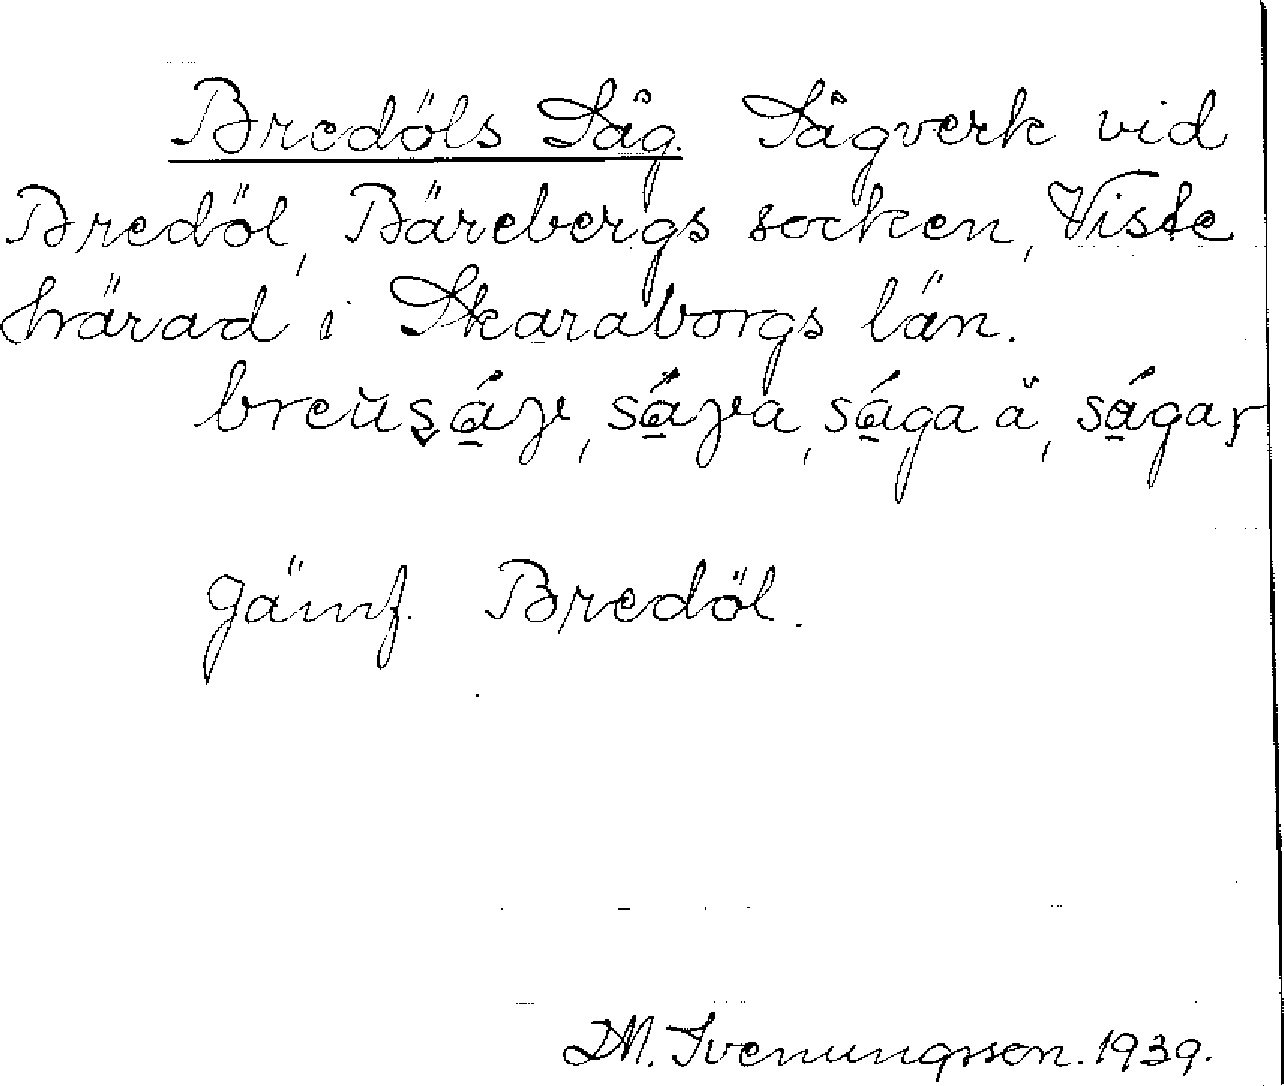 Bredöls Såg. Sågverk vid
Bredöl, Bärebergs socken, Viste
härad i Skaraborgs län.
sága
Jämf. Bredöl.
D.M. Svenungsson. 1939.